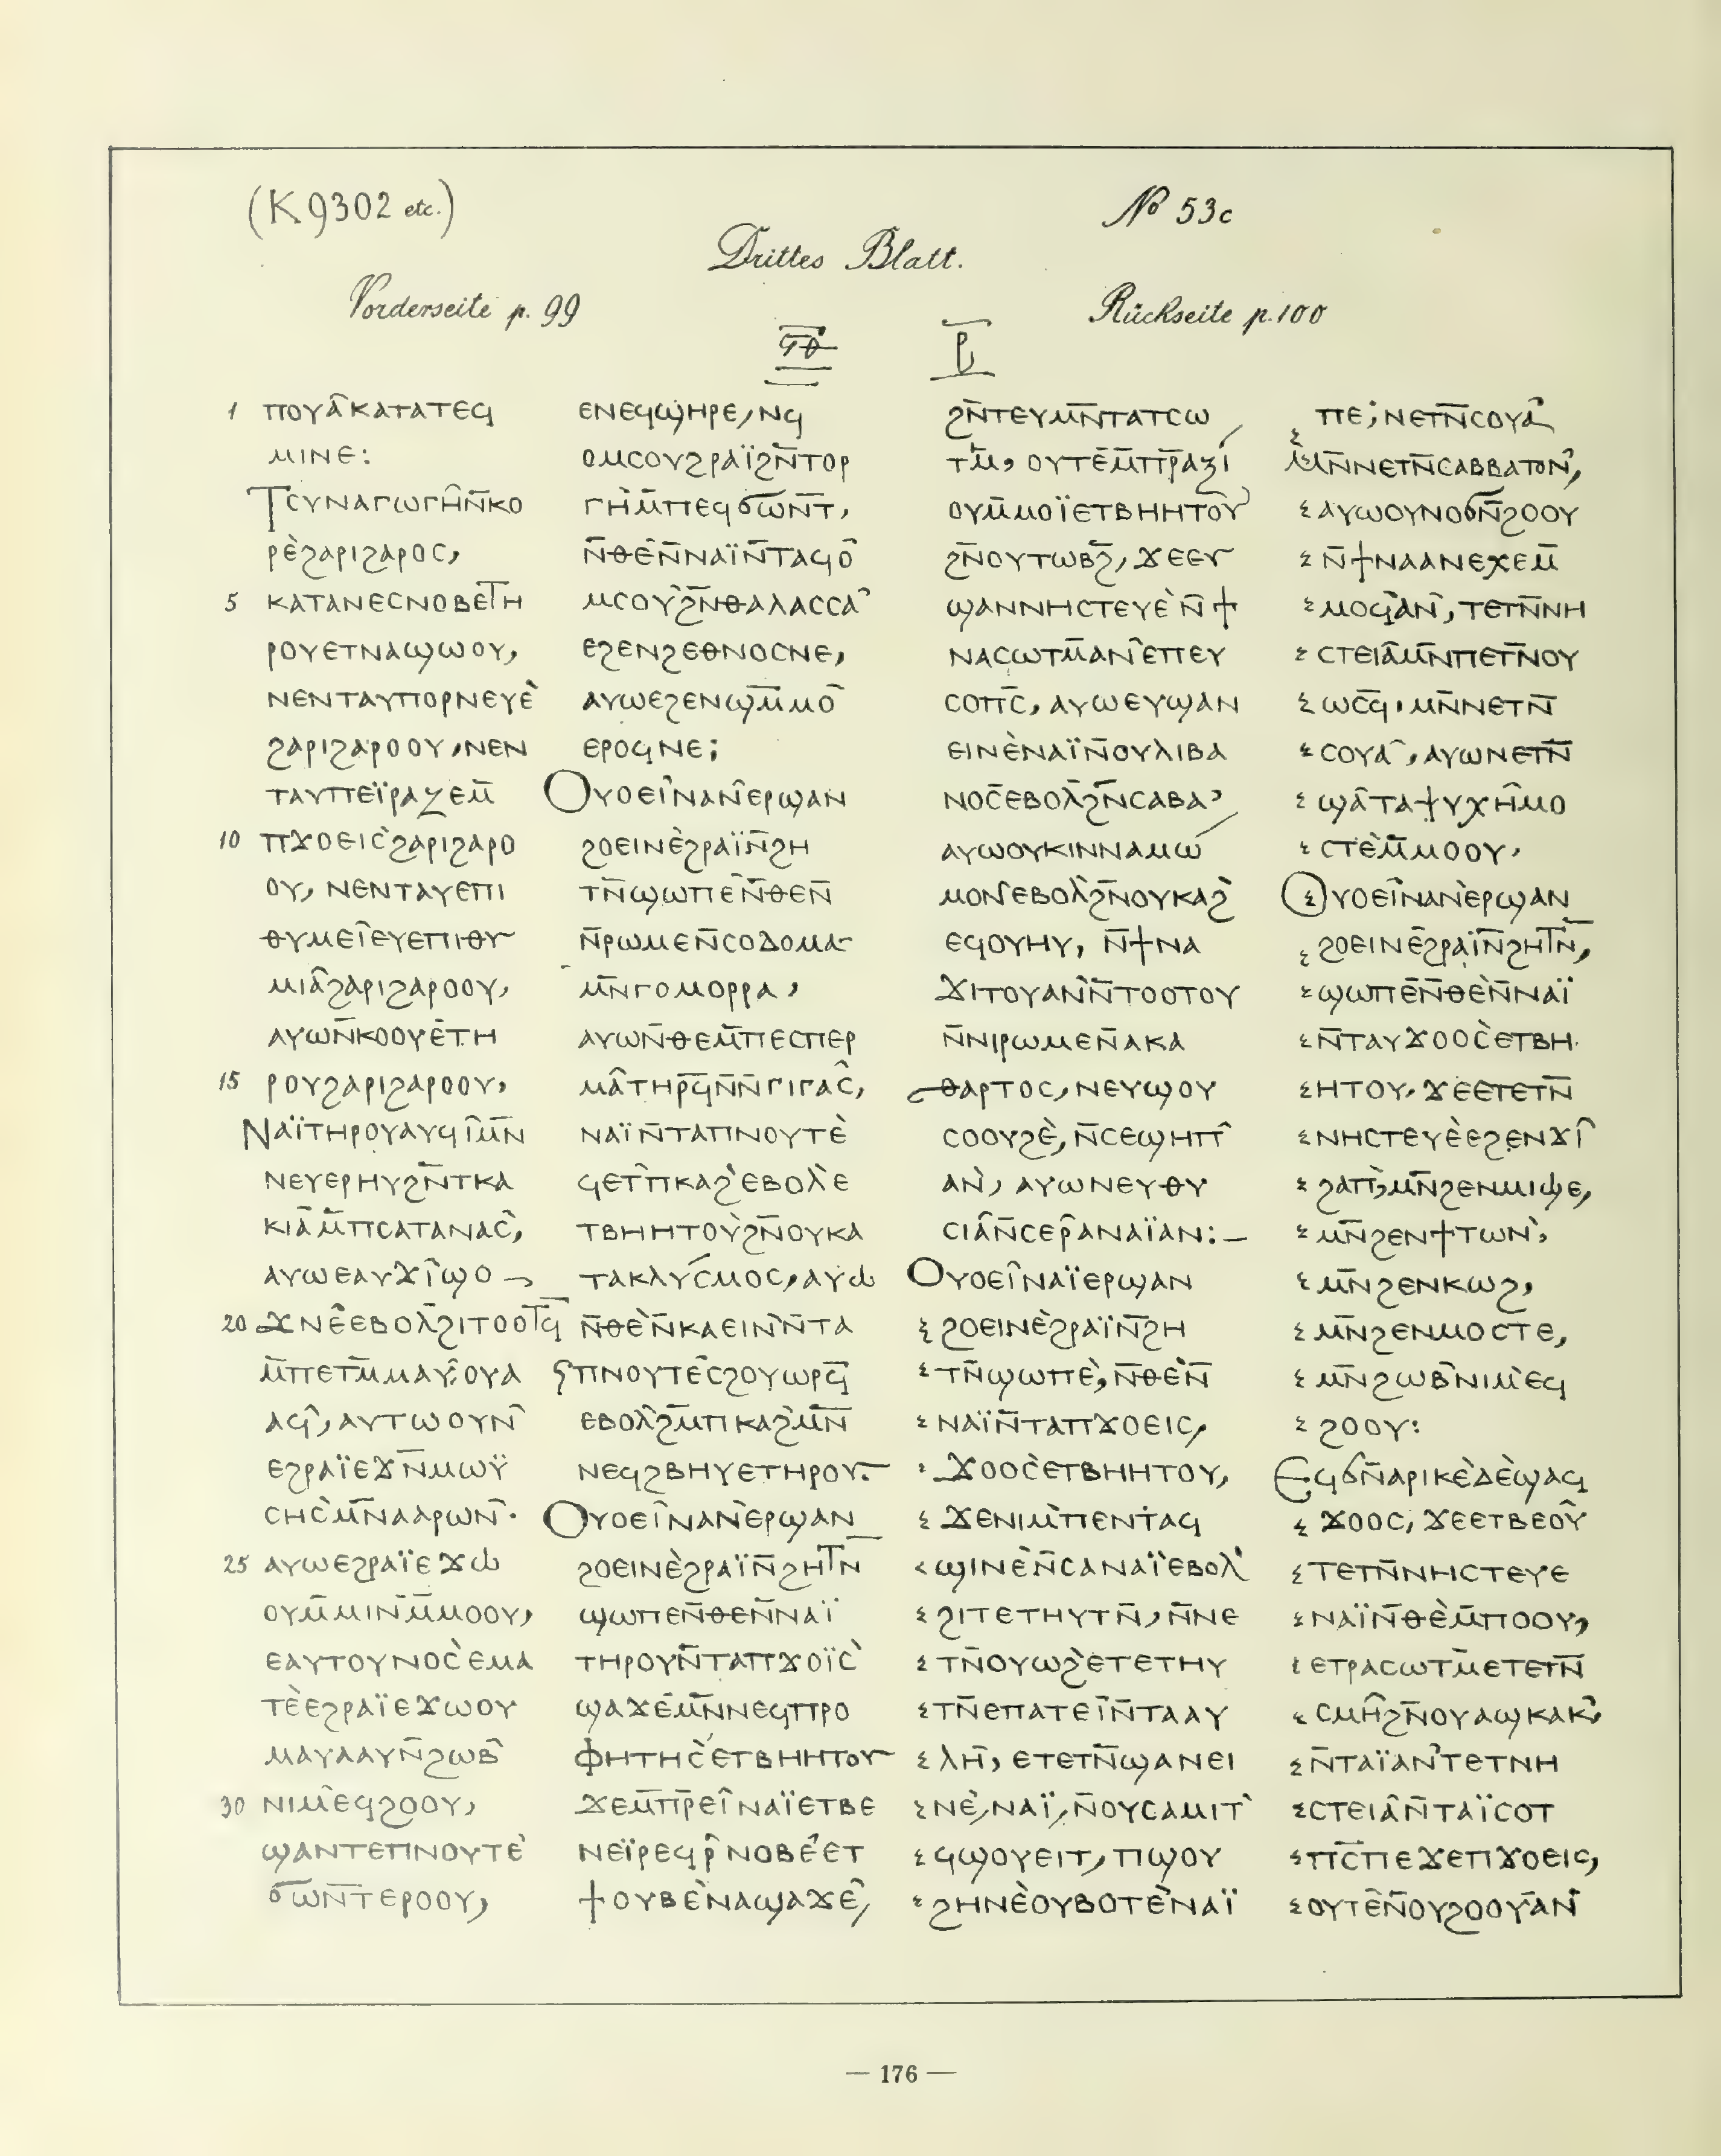 (K 9302 etc.)
№ 53c
Drittes Blatt.
Vorderseite p. 99
Rückseite p. 100
ϥ̅ⲑ̅
ⲣ̅
1 ⲡⲟⲩⲁ̂ⲕⲁⲧⲁⲧⲉϥ
ⲙⲓⲛⲉ:
ⲧⲥⲩⲛⲁⲅⲱⲅⲏ̂ⲛ̅ⲕⲟ
ⲣⲉ̀ϩⲁⲣⲓϩⲁⲣⲟⲥ,
5 ⲕⲁⲧⲁⲛⲉⲥⲛⲟⲃⲉⲧⲏ
ⲣⲟⲩⲉⲧⲛⲁϣⲱⲟⲩ,
ⲛⲉⲛⲧⲁⲩⲡⲟⲣⲛⲉⲩⲉ̀
ϩⲁⲣⲓϩⲁⲣⲟⲟⲩ,ⲛⲉⲛ
ⲧⲁⲩⲡⲉⲓ̈ⲣⲁⲍⲉⲙ̅
10 ⲡϫⲟⲉⲓⲥ̀ϩⲁⲣⲓϩⲁⲣⲟ
ⲟⲩ, ⲛⲉⲛⲧⲁⲩⲉⲡⲓ
ⲑⲩⲙⲉⲓ̂ⲉⲩⲉⲡⲓⲑⲩ
ⲙⲓⲁ̂ϩⲁⲣⲓϩⲁⲣⲟⲟⲩ,
ⲁⲩⲱⲛ̅ⲕⲟⲟⲩⲉ̀ⲧⲏ
15 ⲣⲟⲩϩⲁⲣⲓϩⲁⲣⲟⲟⲩ,
ⲛⲁⲓ̈ⲧⲏⲣⲟⲩⲁⲩϥⲓ̂ⲙ̅ⲛ
ⲛⲉⲩⲉⲣⲏⲩϩⲛ̅ⲧⲕⲁ
ⲕⲓⲁ̂ⲙ̅ⲡⲥⲁⲧⲁⲛⲁⲥ̂,
ⲁⲩⲱⲉⲁⲩϫⲓ̂ϣⲟ
20 ϫⲛⲉ̂ⲉⲃⲟⲗϩⲓⲧⲟⲟⲧϥ̅
ⲙ̅ⲡⲉⲧⲙ̅ⲙⲁⲩ:ⲟⲩⲁ
ⲁϥ̂, ⲁⲩⲧⲱⲟⲩⲛ̂
ⲉϩⲣⲁⲓ̈ⲉϫⲛ̅ⲙⲱⲩ̈
ⲥⲏⲥ̀ⲙⲛ̅ⲁⲁⲣⲱⲛ̂·
25 ⲁⲩⲱⲉϩⲣⲁⲓ̈ⲉϫⲱ
ⲟⲩⲙ̅ⲙⲓⲛ̀ⲙ̅ⲙⲟⲟⲩ,
ⲉⲁⲩⲧⲟⲩⲛⲟⲥ̀ⲉⲙⲁ
ⲧⲉ̀ⲉϩⲣⲁⲓ̈ⲉϫⲱⲟⲩ
ⲙⲁⲩⲁⲁⲩⲛ̅ϩⲱⲃ̂
30 ⲛⲓⲙ̀ⲉϥϩⲟⲟⲩ,
ϣⲁⲛⲧⲉⲡⲛⲟⲩⲧⲉ̀
ϭⲱⲛ̅ⲧⲉⲣⲟⲟⲩ,
ⲉⲛⲉϥϣⲏⲣⲉ,ⲛϥ
ⲟⲙⲥⲟⲩϩⲣⲁⲓ̈ϩⲛ̅ⲧⲟⲣ
ⲅⲏ̀ⲙ̅ⲡⲉϥϭⲱⲛ̅ⲧ,
ⲛ̅ⲑⲉ̂ⲛ̅ⲛⲁⲓ̈ⲛ̅ⲧⲁϥⲟ̅
ⲙⲥⲟⲩ̀ϩⲛ̅ⲑⲁⲗⲁⲥⲥⲁ̂
ⲉϩⲉⲛϩⲉⲑⲛⲟⲥⲛⲉ,
ⲁⲩⲱⲉϩⲉⲛϣⲙ̅ⲙⲟ̅
ⲉⲣⲟϥⲛⲉ;
ⲟⲩⲟⲉⲓ̂ⲛⲁⲛ̂ⲉⲣϣⲁⲛ
ϩⲟⲉⲓⲛⲉ̀ϩⲣⲁⲓ̈ⲛ̅ϩⲏ
ⲧⲛ̅ϣⲱⲡⲉ̂ⲛ̅ⲑⲉⲛ̅
ⲛ̅ⲣⲱⲙⲉⲛ̅ⲥⲟⲇⲟⲙⲁ
ⲙⲛ̅ⲅⲟⲙⲟⲣⲣⲁ,
ⲁⲩⲱⲛ̅ⲑⲉⲙ̅ⲡⲉⲥⲡⲉⲣ
ⲙⲁ̂ⲧⲏⲣϥ̅ⲛ̅ⲛⲅⲓⲅⲁⲥ̂,
ⲛⲁⲓ̈ⲛ̅ⲧⲁⲡⲛⲟⲩⲧⲉ̀
ϥⲉⲧⲡ̂ⲕⲁϩ̀ⲉⲃⲟⲗ̀ⲉ
ⲧⲃⲏⲏⲧⲟⲩ̀ϩⲛ̅ⲟⲩⲕⲁ
ⲧⲁⲕⲗⲩⲥⲙⲟⲥ,ⲁⲩⲱ
ⲛ̅ⲑⲉ̀ⲛ̅ⲕⲁⲉⲓⲛ̀ⲛ̅ⲧⲁ
ⲡⲛⲟⲩⲧⲉ̂ⲥϩⲟⲩⲱⲣϥ̅
ⲉⲃⲟⲗ̂ϩⲙ̅ⲡⲕⲁϩ̀ⲙⲛ̅
ⲛⲉϥϩⲃⲏⲩⲉⲧⲏⲣⲟⲩ.
ⲟⲩⲟⲉⲓ̂ⲛⲁⲛ̀ⲉⲣϣⲁⲛ
ϩⲟⲉⲓⲛⲉ̀ϩⲣⲁⲓ̈ⲛ̅ϩⲏⲧⲛ̅
ϣⲱⲡⲉⲛ̅ⲑⲉⲛ̅ⲛⲁⲓ̈
ⲧⲏⲣⲟⲩⲛ̅ⲧⲁⲡϫⲟⲓ̈ⲥ̀
ϣⲁϫⲉ̀ⲙⲛ̅ⲛⲉϥⲡⲣⲟ
ⲫⲏⲧⲏⲥ̀ⲉⲧⲃⲏⲏⲧⲟⲩ
ϫⲉⲙ̅ⲡⲣ̅ⲉⲓ̂ⲛⲁⲓ̈ⲉⲧⲃⲉ
ⲛⲉⲓ̈ⲣⲉϥⲣ̂ⲛⲟⲃⲉ̂ⲉⲧ
ϯⲟⲩⲃⲉ̀ⲛⲁϣⲁϫⲉ̂,
ϩⲛ̅ⲧⲉⲩⲙⲛ̅ⲧⲁⲧⲥⲱ
ⲧⲙ̅, ⲟⲩⲧⲉ̂ⲙ̅ⲡⲣ̅ⲁϩⲓ
ⲟⲩⲙ̅ⲙⲟⲓ̈ⲉⲧⲃⲏⲏⲧⲟⲩ
ϩⲛ̅ⲟⲩⲧⲱⲃϩ̅, ϫⲉⲉⲩ
ϣⲁⲛⲛⲏⲥⲧⲉⲩⲉ̀ⲛ̅ϯ
ⲛⲁⲥⲱⲧⲙ̅ⲁⲛ̂ⲉⲡⲉⲩ
ⲥⲟⲡⲥ̅, ⲁⲩⲱⲉⲩϣⲁⲛ
ⲉⲓⲛⲉ̀ⲛⲁⲓ̈ⲛ̅ⲟⲩⲗⲓⲃⲁ
ⲛⲟⲥ̂ⲉⲃⲟⲗϩⲛ̅ⲥⲁⲃⲁ
ⲁⲩⲱⲟⲩⲕⲓⲛⲛⲁⲙⲱ
ⲙⲟⲛ̂ⲉⲃⲟⲗ̀ϩⲛ̅ⲟⲩⲕⲁϩ̀
ⲉϥⲟⲩⲏⲩ, ⲛ̅ϯⲛⲁ
ϫⲓⲧⲟⲩⲁⲛ̀ⲛ̅ⲧⲟⲟⲧⲟⲩ
ⲛ̅ⲛⲓⲣⲱⲙⲉⲛ̅ⲁⲕⲁ
ⲑⲁⲣⲧⲟⲥ,ⲛⲉⲩϣⲟⲩ
ⲥⲟⲟⲩϩⲉ̀,ⲛ̅ⲥⲉϣⲏⲡ̂
ⲁⲛ̀, ⲁⲩⲱⲛⲉⲩⲑⲩ
ⲥⲓⲁ̂ⲛ̅ⲥⲉⲣ̂ⲁⲛⲁⲓ̈ⲁⲛ:—
ⲟⲩⲟⲉⲓ̂ⲛⲁⲓ̈ⲉⲣϣⲁⲛ
ϩⲟⲉⲓⲛⲉ̀ϩⲣⲁⲓ̈ⲛ̅ϩⲏ
ⲧⲛ̅ϣⲱⲡⲉ̀,ⲛ̅ⲑⲉ̀ⲛ̅
ⲛⲁⲓ̈ⲛ̅ⲧⲁⲡϫⲟⲉⲓⲥ,
ϫⲟⲟⲥ̀ⲉⲧⲃⲏⲏⲧⲟⲩ,
ϫⲉⲛⲓⲙ̀ⲡⲉⲛⲧⲁϥ
ϣⲓⲛⲉ̀ⲛ̅ⲥⲁⲛⲁⲓ̈ⲉⲃⲟⲗ̀
ϩⲓⲧⲉⲧⲏⲩⲧⲛ̅,ⲛ̅ⲛⲉ
ⲧⲛ̅ⲟⲩⲱϩ̀ⲉⲧⲉⲧⲏⲩ
ⲧⲛ̅ⲉⲡⲁⲧⲉⲓ̂ⲛ̅ⲧⲁⲁⲩ
ⲗⲏ̅, ⲉⲧⲉⲧⲛ̅ϣⲁⲛⲉⲓ
ⲛⲉ̀,ⲛⲁⲓ̈,ⲛ̅ⲟⲩⲥⲁⲙⲓⲧ̀
ϥϣⲟⲩⲉⲓⲧ,ⲡϣⲟⲩ
ϩⲏⲛⲉ̀ⲟⲩⲃⲟⲧⲉ̀ⲛⲁⲓ̈
ⲡⲉ;ⲛⲉⲧⲛ̅ⲥⲟⲩⲁ̂
ⲙⲛ̅ⲛⲉⲧⲛ̅ⲥⲁⲃⲃⲁⲧⲟⲛ̂,
ⲁⲩⲱⲟⲩⲛⲟϭⲛ̅ϩⲟⲟⲩ
ⲛ̅ϯⲛⲁⲁⲛⲉⲭⲉⲙ̅
ⲙⲟϥ̀ⲁⲛ̂,ⲧⲉⲧⲛ̅ⲛⲏ
ⲥⲧⲉⲓⲁ̂ⲙⲛ̅ⲡⲉⲧⲛ̅ⲟⲩ
ⲱⲥϥ̅·ⲙⲛ̅ⲛⲉⲧⲛ̅
ⲥⲟⲩⲁ̂,ⲁⲩⲱⲛⲉⲧⲛ̅
ϣⲁ̂ⲧⲁⲯⲩⲭⲏ̂ⲙⲟ
ⲥⲧⲉ̀ⲙ̅ⲙⲟⲟⲩ·
ⲟⲩⲟⲉⲓ̂ⲛⲁⲛ̀ⲉⲣϣⲁⲛ
ϩⲟⲉⲓⲛⲉ̀ϩⲣⲁⲓ̈ⲛ̅ϩⲏⲧⲛ̅,
ϣⲱⲡⲉ̂ⲛ̅ⲑⲉ̀ⲛ̅ⲛⲁⲓ̈
ⲛ̅ⲧⲁⲩϫⲟⲟⲥ̀ⲉⲧⲃⲏ
ⲏⲧⲟⲩ,ϫⲉⲉⲧⲉⲧⲛ̅
ⲛⲏⲥⲧⲉⲩⲉ̀ⲉϩⲉⲛϫⲓ̂
ϩⲁⲡ̀,ⲙⲛ̅ϩⲉⲛⲙⲓϣⲉ,
ⲙⲛ̅ϩⲉⲛϯⲧⲱⲛ̀,
ⲙⲛ̅ϩⲉⲛⲕⲱϩ,
ⲙⲛ̅ϩⲉⲛⲙⲟⲥⲧⲉ,
ⲙⲛ̅ϩⲱⲃ̀ⲛⲓⲙ̀ⲉϥ
ϩⲟⲟⲩ:
ⲉϥϭⲛ̅ⲁⲣⲓⲕⲉ̀ⲇⲉ̀ϣⲁϥ
ϫⲟⲟⲥ,ϫⲉⲉⲧⲃⲉⲟⲩ̂
ⲧⲉⲧⲛ̅ⲛⲏⲥⲧⲉⲩⲉ
ⲛⲁⲓ̈ⲛ̅ⲑⲉ̀ⲙ̅ⲡⲟⲟⲩ,
ⲉⲧⲣⲁⲥⲱⲧⲙ̅ⲉⲧⲉⲧⲛ̅
ⲥⲙⲏ̂ϩⲛ̅ⲟⲩⲁϣⲕⲁⲕ,
ⲛ̅ⲧⲁⲓ̈ⲁⲛ̀ⲧⲉⲧⲛⲏ
ⲥⲧⲉⲓⲁ̂ⲛ̅ⲧⲁⲓ̈ⲥⲟⲧ
ⲡⲥ̅ⲡⲉϫⲉⲡϫⲟⲉⲓⲥ,
ⲟⲩⲧⲉ̂ⲛ̅ⲟⲩϩⲟⲟⲩ̀ⲁⲛ̀
— 176 —